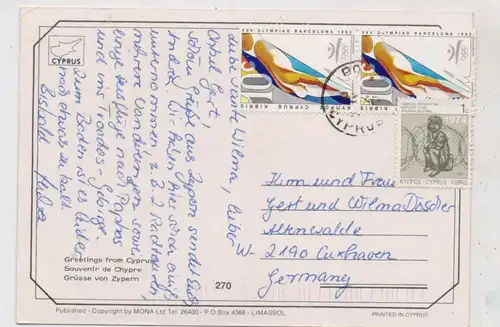 CYPRUS
liebe Tante Wilma, lieber
Onkel Gert,
schöne Grüße aus Zypern sendet Euch
André. Wir haben hier schon einiges
unternommen z.B. 2 Radtouren,
mehrere Wanderungen sowie
Ausflüge nach Paphos
und ins Troodos-Gebirge.
Zum Baden ist es leider
noch etwas zu kalt.
Bis bald
Greetings from Cyprus
Souvenir de Chypre
Grüsse von Zypern
270
XXV OLYMPIAD BARCELONA 1992
10
KIBRIS CYPRUS
XXV OLYMPIAD BARCELONA 1992
10
KIBRIS CYPRUS
CYPRUS
1c
1974
ΚΥΠΡΟΣ-CYPRUS KIBRIS
und Frau
Gert und Wilma
Altenwalde
W- 2190 Cuxhaven
Germany
Published - Copyright by MONA Ltd Tel: 26400 - P.O.Box 4368 - LIMASSOL
PRINTED IN CYPRUS